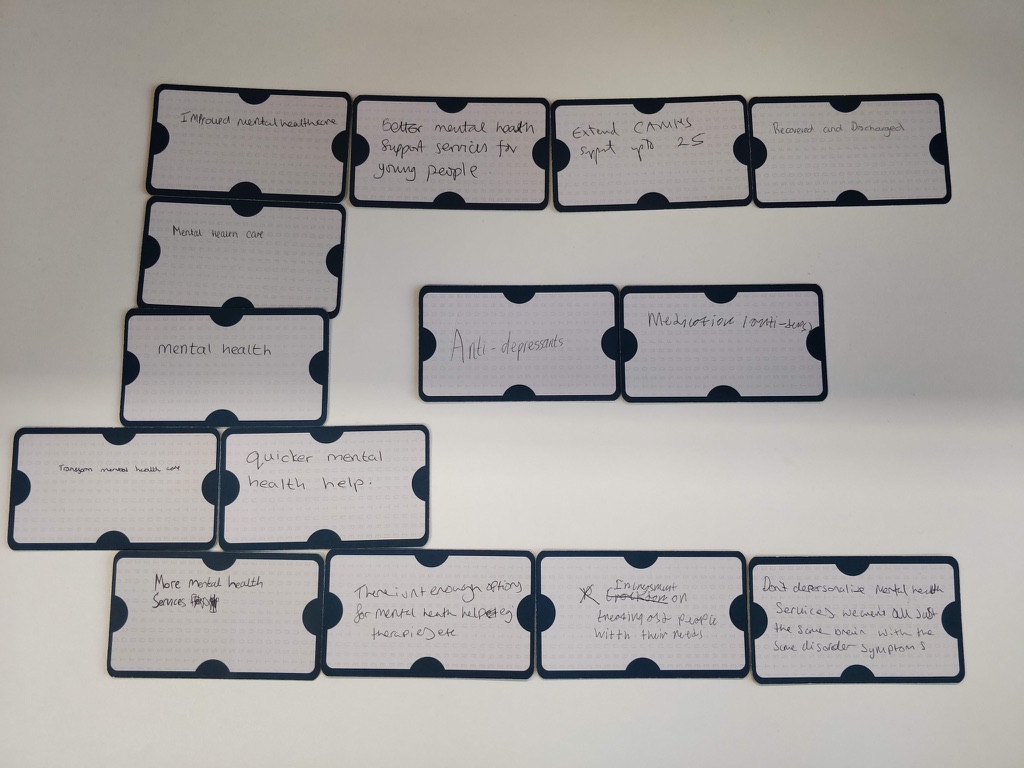 Improved mental healthcare
Better mental health
support services for
young people
Extend CAMHS
support upto 25
Recovered and Discharged
Mental health care
mental health
Anti-depressants
Medication (anti-
Transform mental health care
quicker mental
health help.
More mental health
Services
There isnt enough options
for mental heath help eg
therapies etc
on
treating ost people
witth their needs
Don't depersonalize mental health
Services, we arent all just
the same brain with the
same disorder symptoms